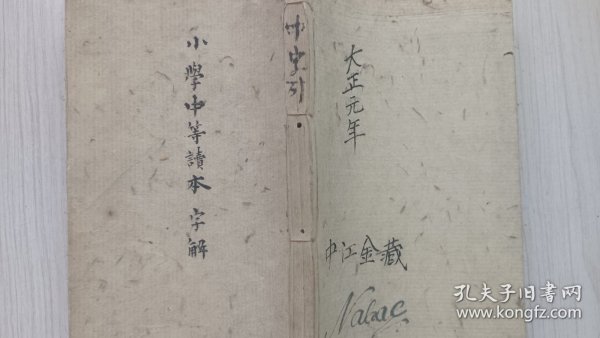 小學中等讀本字解
中字引
大正元年
中江金藏
孔夫子旧书网
www.kongfz.com